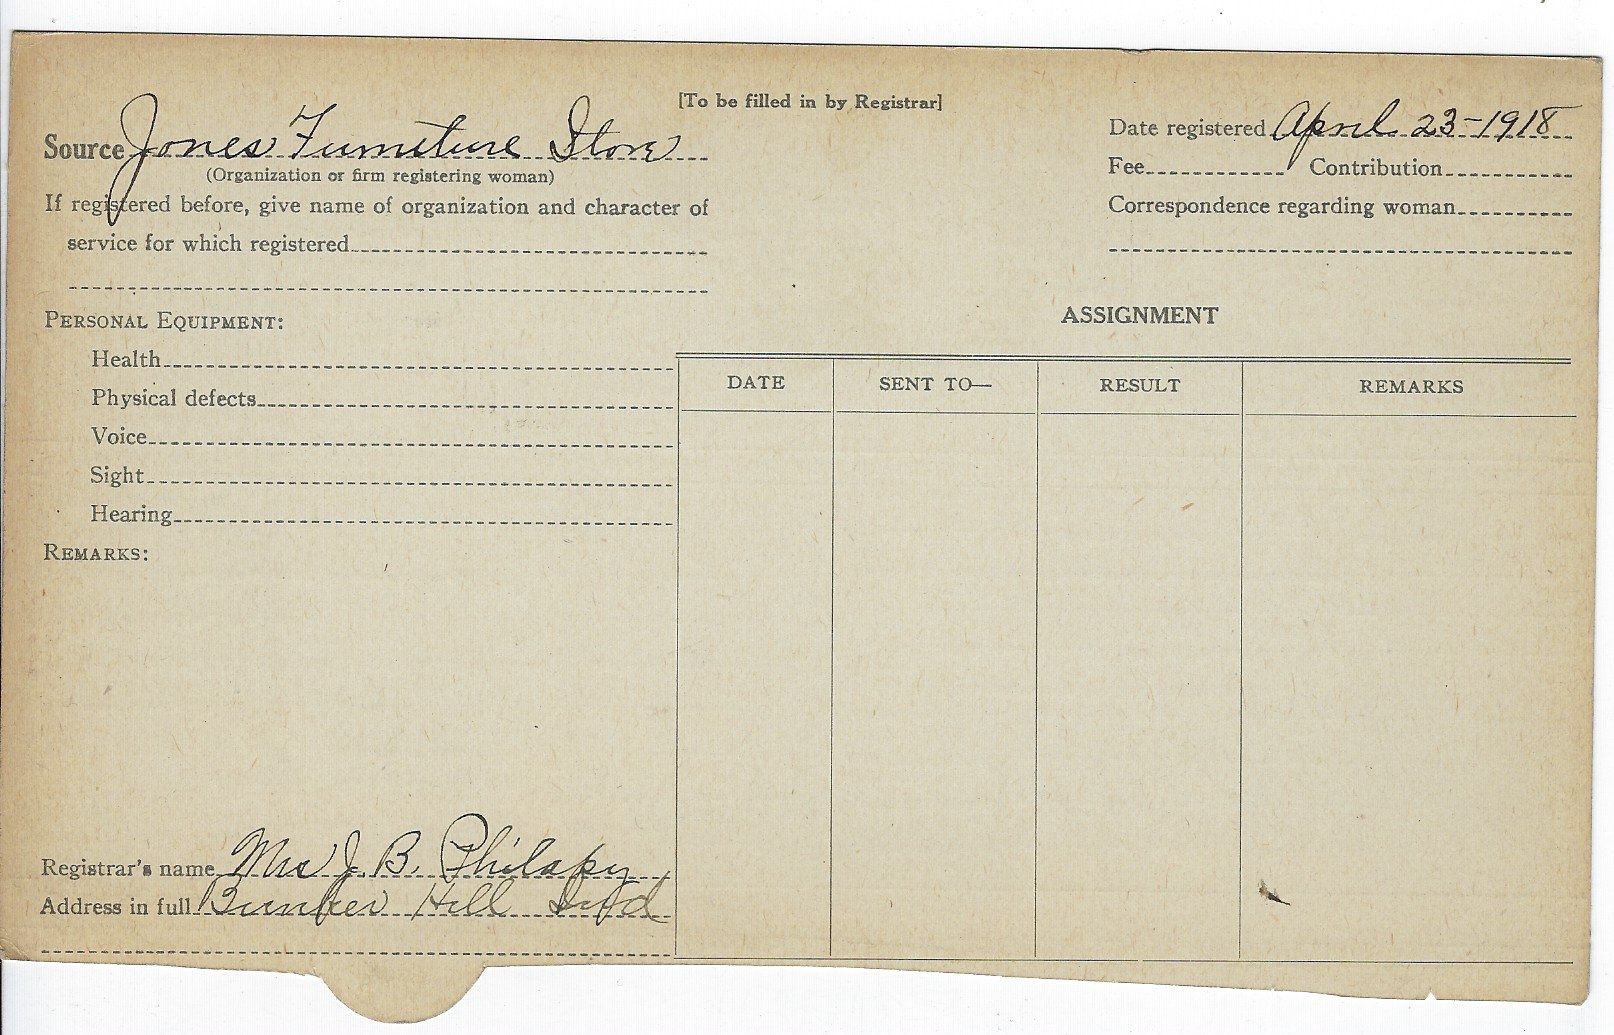 [To be filled in by Registrar]
Source Jones Furniture Store
(Organization or firm registering woman)
If registered before, give name of organization and character of
service for which registered
PERSONAL EQUIPMENT:
Health
Physical defects
Voice
Sight
Hearing
REMARKS:
Registrar's name Mrs J. B. Philapy
Address in full Bunker Hill Ind
Date registered April 23-1918
Fee Contribution
Correspondence regarding woman
ASSIGNMENT
DATE SENT TO— RESULT REMARKS